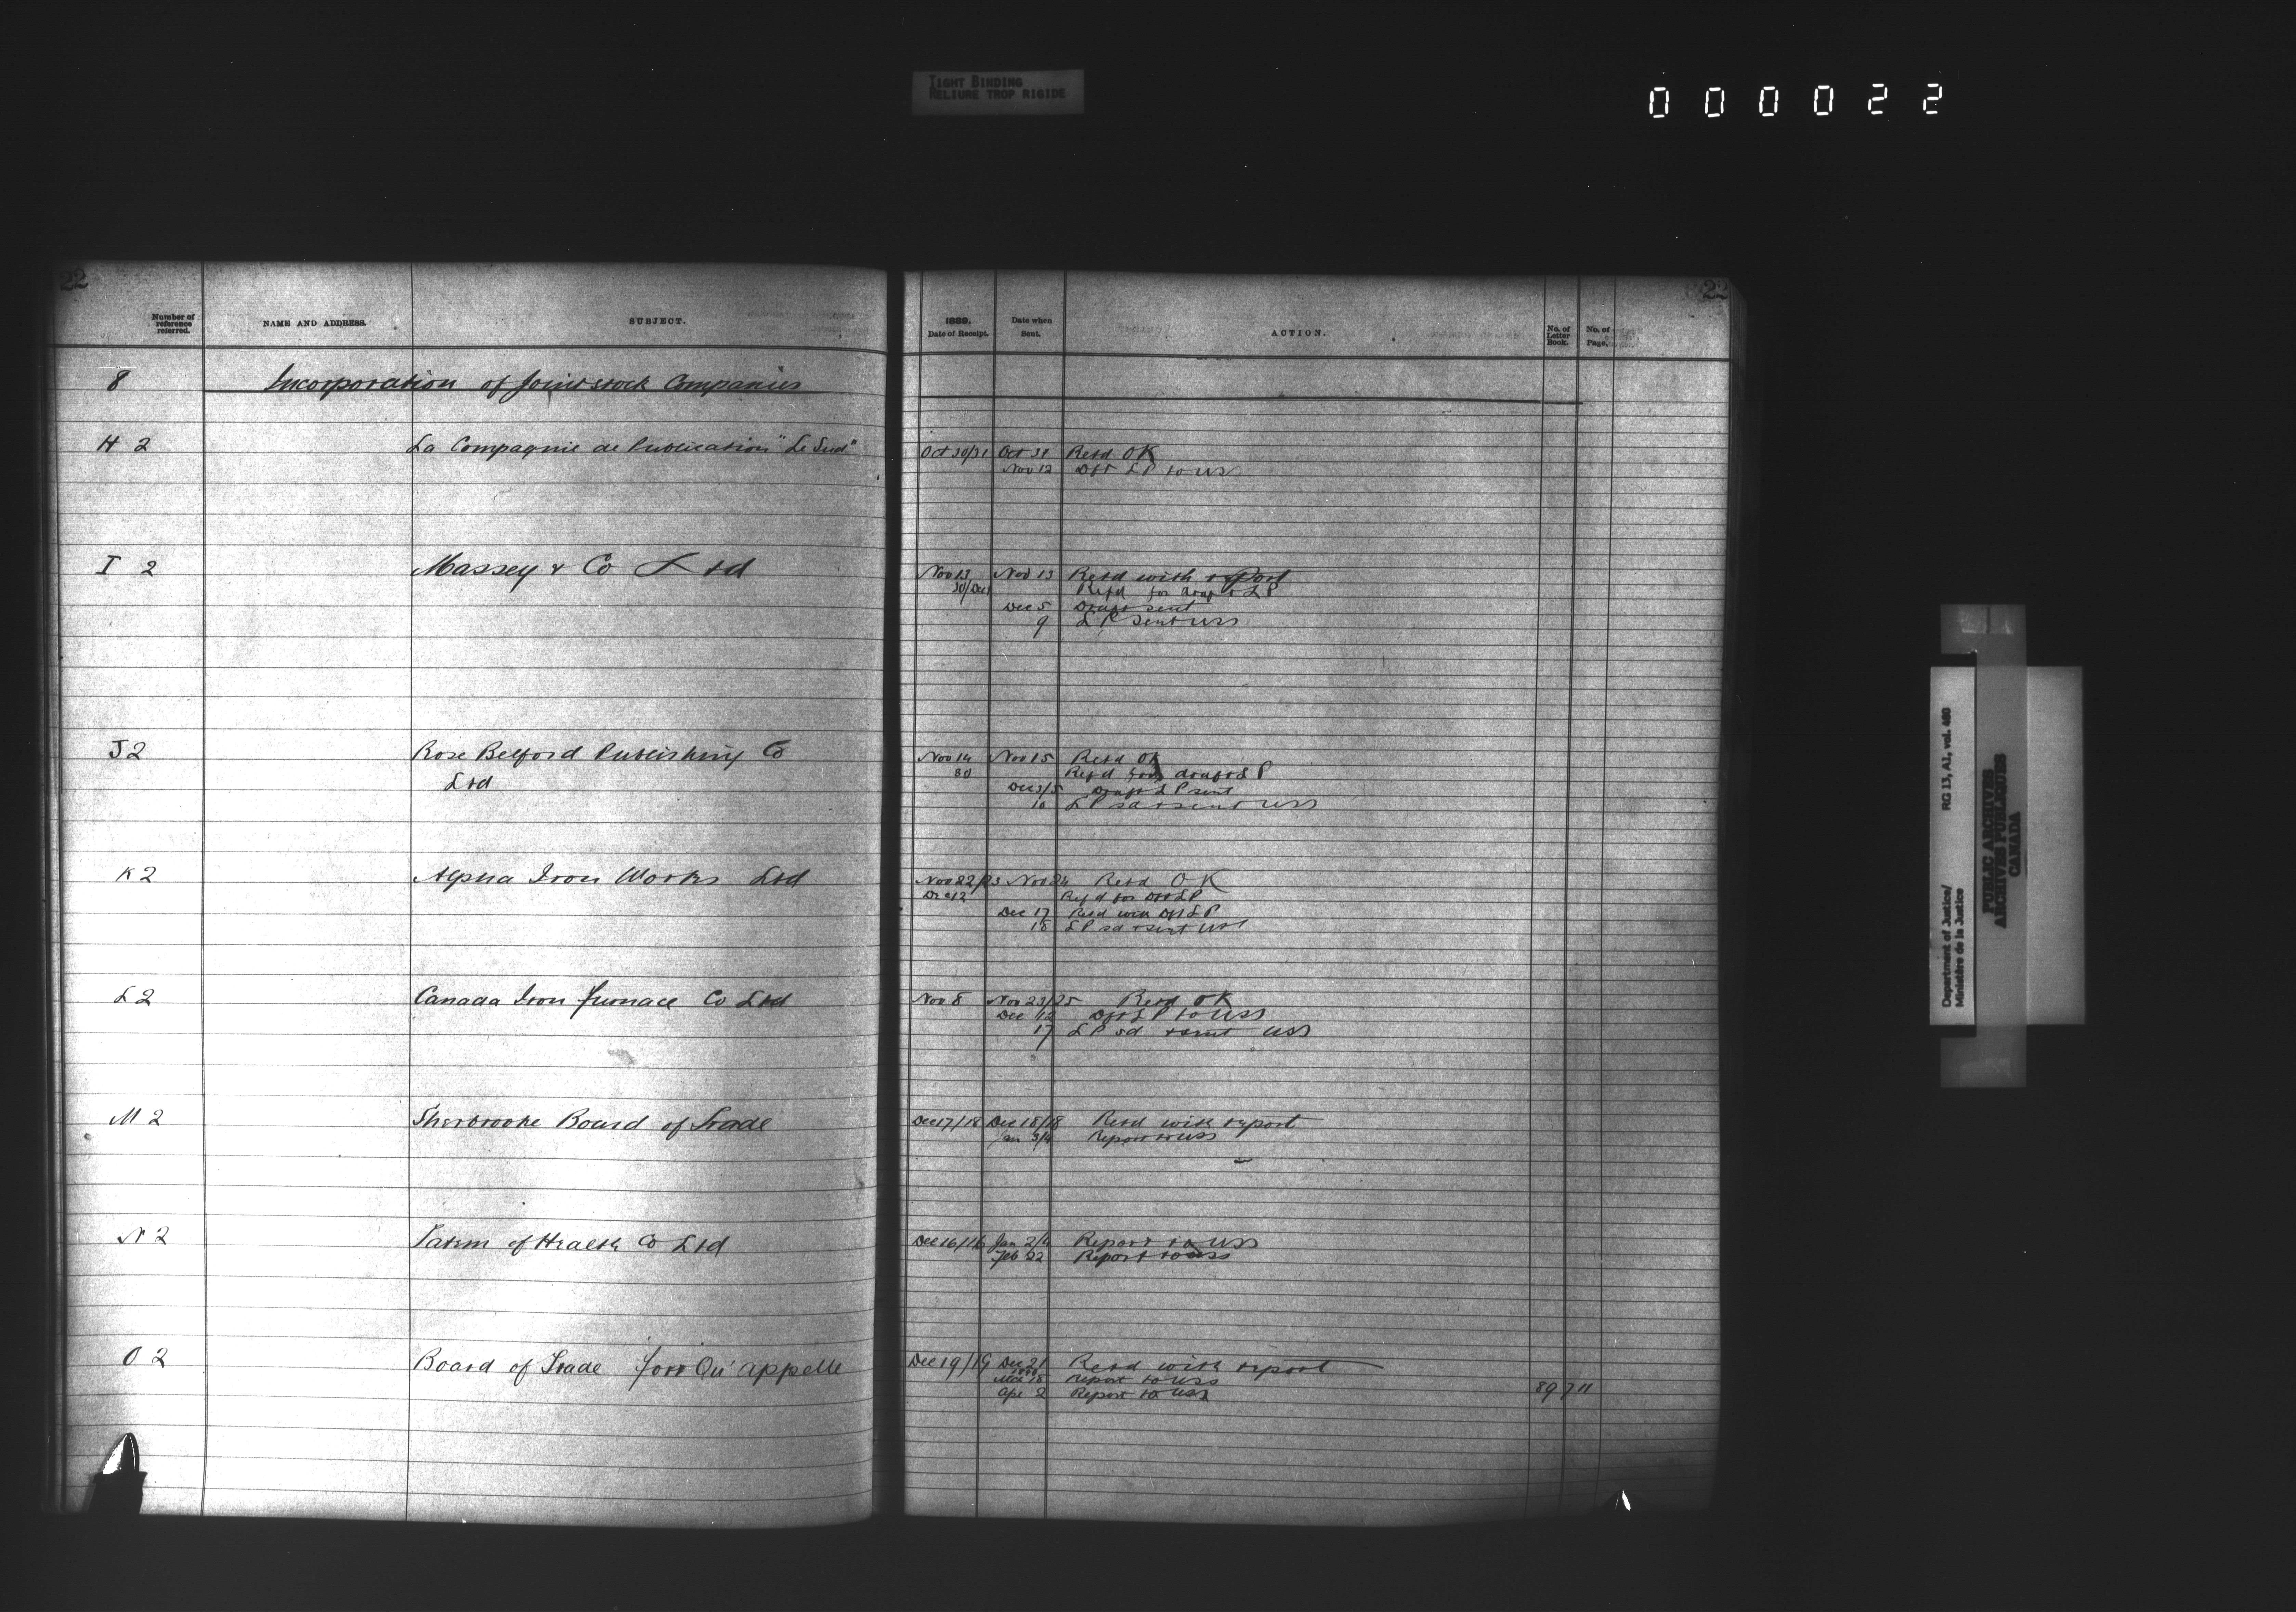 TIGHT BINDING
RELIURE TROP RIGIDE
000022
22
22
Number of reference referred.
NAME AND ADDRESS.
SUBJECT.
1889.
Date of Receipt.
Date when Sent.
ACTION.
No. of Letter Book.
No. of Page.
8 Incorporation of Joint stock Companies
H 2 La Compagnie de Publication "Le Sud" Oct 30/31 Oct 31 Retd OK
Nov 12 Dft LP to USS
I 2 Massey & Co Ltd Nov 13 Nov 13 Retd with report
30/Dec 1 Refd for draft LP
Dec 5 Draft sent
9 LP sent USS
J 2 Rose Belford Publishing Co Nov 14 Nov 15 Retd OK
Ltd 30 Refd for draft LP
Dec 3/5 Draft LP sent
10 LP sd & sent USS
K 2 Alpha Iron Works Ltd Nov 22/23 Nov 24 Retd OK
Dec 12 Refd for Dft LP
Dec 17 Retd with Dft LP
18 LP sd & sent USS
L 2 Canada Iron Furnace Co Ltd Nov 8 Nov 23/25 Retd OK
Dec 12 Dft LP to USS
17 LP sd & sent USS
M 2 Sherbrooke Board of Trade Dec 17/18 Dec 18/18 Retd with report
Jan 3/4 Report to USS
N 2 of Health Co Ltd Dec 16/16 Jan 2/4 Report to USS
Feb 22 Report to USS
O 2 Board of Trade Fort Qu'appelle Dec 19/19 Dec 21 Retd with report
1890
Mch 18 report to USS
Apl 2 Report to USS 89 711
Department of Justice/
Ministère de la Justice
RG 13, A1, vol. 480
PUBLIC ARCHIVES
ARCHIVES PUBLIQUES
CANADA